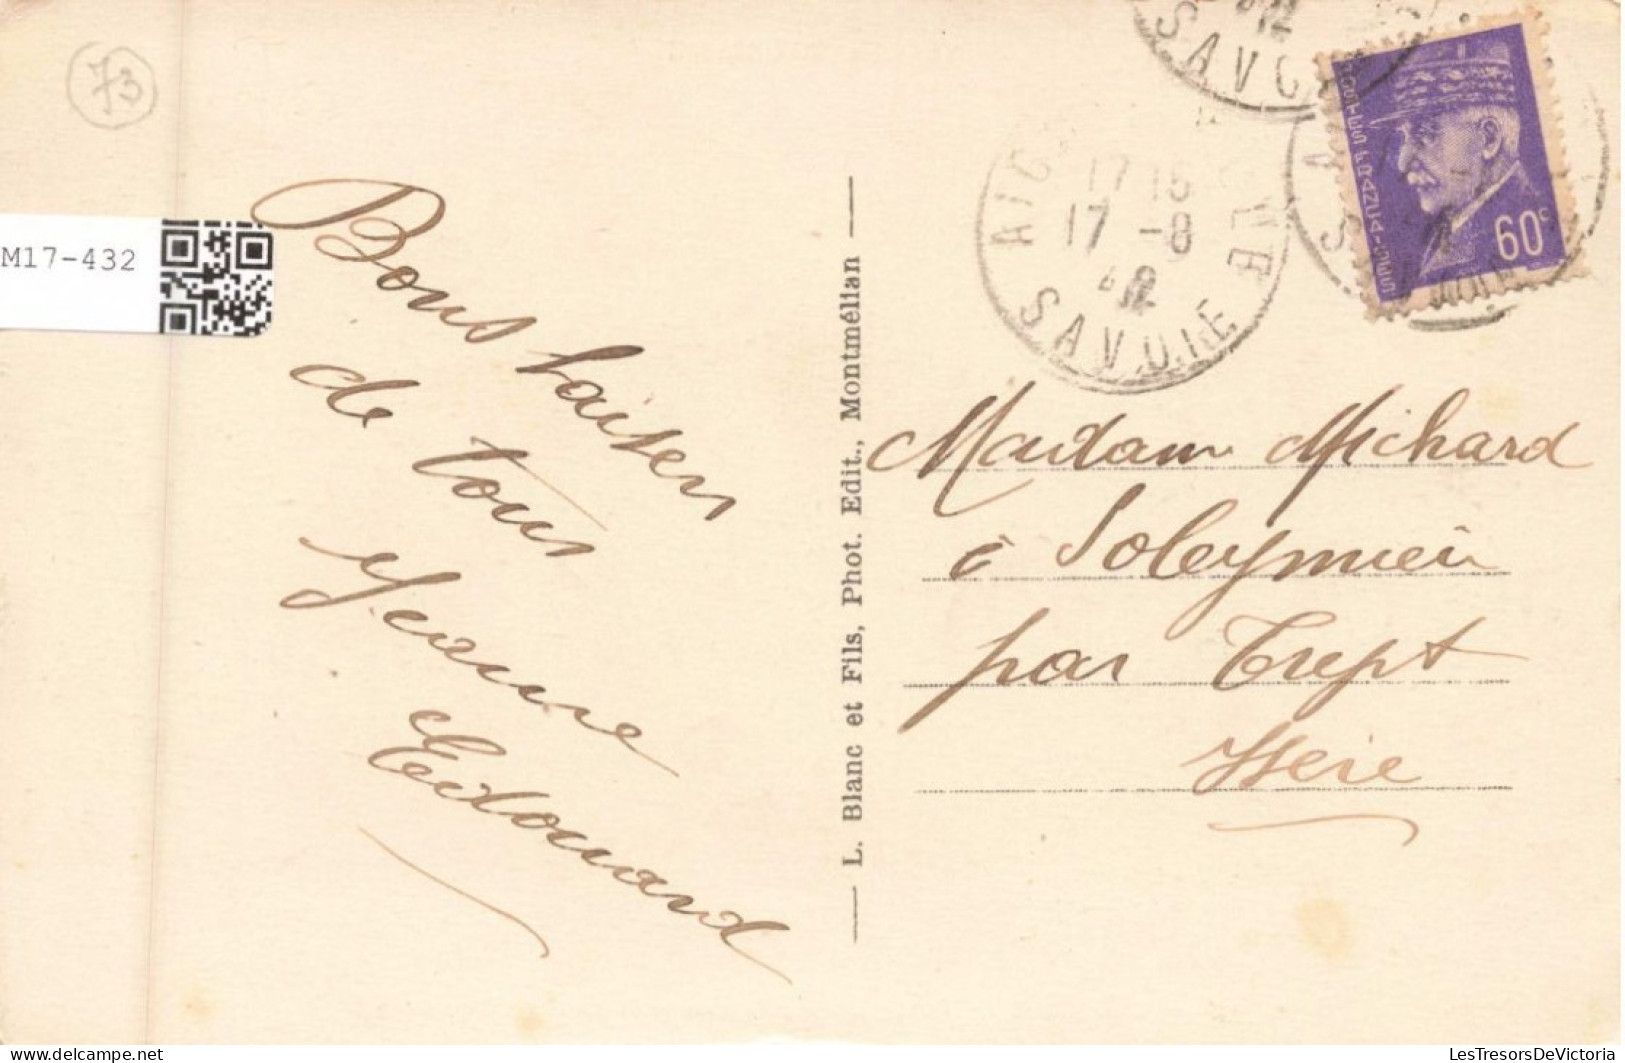 73
M17-432
Bons baisers
de tous
Jeanne
Edouard
L. Blanc et Fils, Phot. Edit., Montmélian
17 15
17 -8
42
SAVOIE
SAVOIE
POSTES FRANÇAISES
60c
Madame Michard
à Soleymieu
par Trept
Isère
LesTresorsDeVictoria
delcampe.net